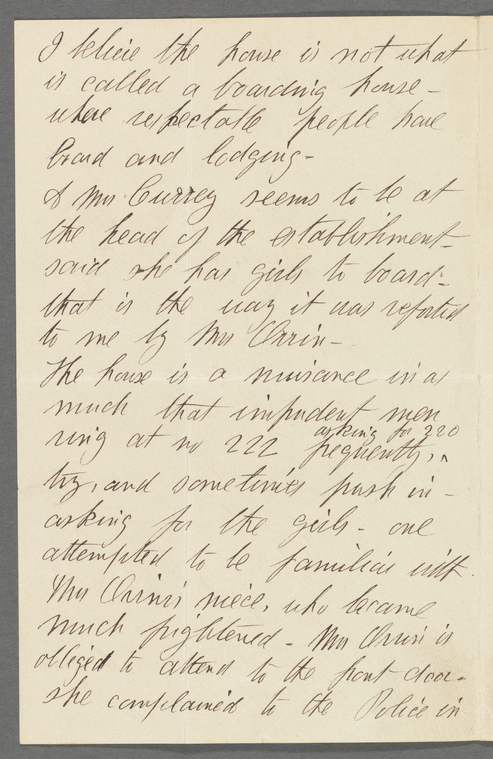 I believe the house is not what
is called a boarding house -
where respectable people have
board and lodging -
A Mrs Currey seems to be at
the head of the establishment -
said she has girls to board -
that is the way it was reported
to me by Mrs Orrin -
The house is a nuisance in as
much that impudent men
asking for 220
ring at no 222 frequently, ^
try, and sometimes push in -
asking for the girls - one
attempted to be familiar with
Mrs Orrin's niece, who became
much frightened - Mrs Orrin is
obliged to attend to the front door -
she complained to the Police in